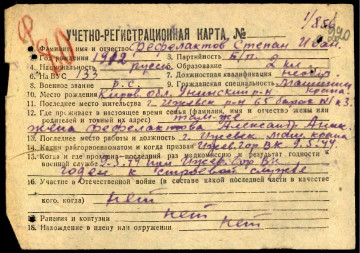 1/856
УЧЕТНО-РЕГИСТРАЦИОННАЯ КАРТА, №
Фамилия имя и отчество Дефелактов Степан Иван
рождения 1902 3. Партийность Б/п.
4. Национальность русск 5. Образование 2 кл
6. На ВУС 133 7. Должностная квалификация
8. Военное звание р.с. 9. Гражданская специальность
10. Место рождения Киров. обл.
11. Последнее место жительства г. Ижевск 65 барак № 3.
12. Где проживает в настоящее время семья (фамилия, имя и отчество жены или
родителей и точный их адрес) там-же
жена Дефелактова Александр
13. Последнее место работы и должность г. Ижевск маш.
14. Каким райгорвоенкоматом и когда призван Ижев. Гор В К. 9.5.44
15. Когда и где проходил последний раз медкомиссию и результат годности к
военной службе 9.5.44 Ижев. Гор ВК
годен к строевой службе
16. Участие в Отечественной войне (в составе какой последней части в качестве
кого, когда) нет
17. Ранения и контузии нет
18. Нахождение в плену или окружении нет